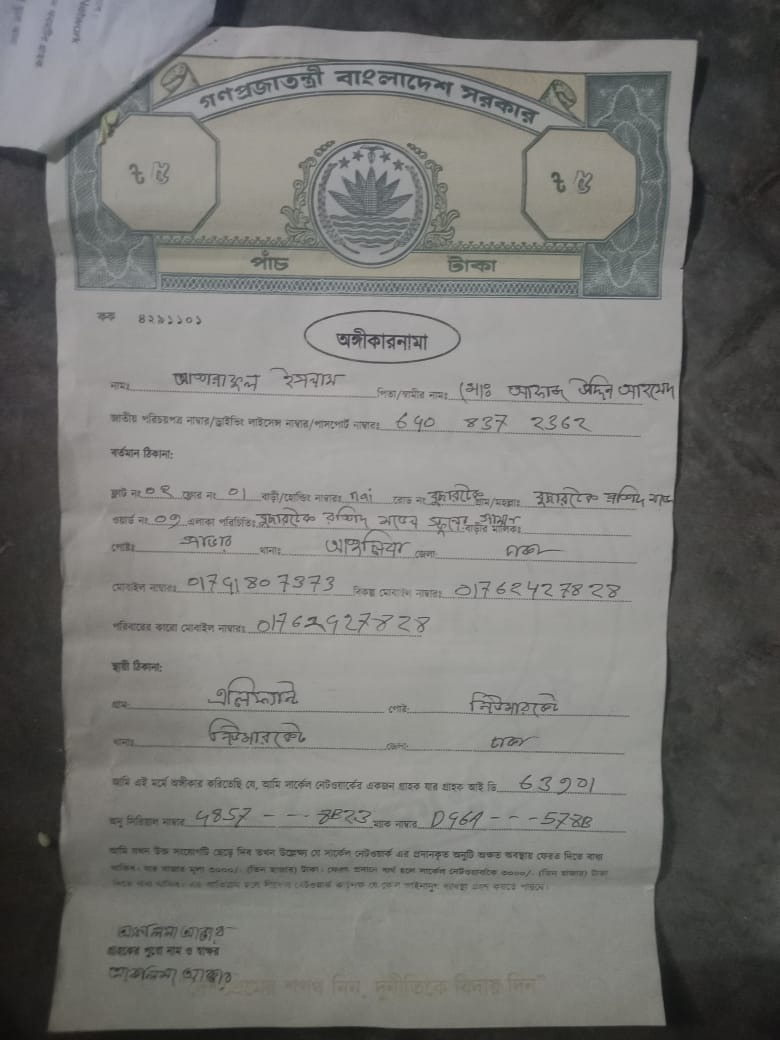 Network
গণপ্রজাতন্ত্রী বাংলাদেশ সরকার
৳ ৫ ৳ ৫
পাঁচ টাকা
কক ৪২৯১১০১
অঙ্গীকারনামা
নামঃ ইসলাম পিতা/স্বামীর নামঃ মোঃ উদ্দিন আহমেদ
জাতীয় পরিচয়পত্র নাম্বার/ড্রাইভিং লাইসেন্স নাম্বার/পাসপোর্ট নাম্বারঃ 640 837 2362
বর্তমান ঠিকানা:
ফ্লাট নং ০২ ফ্লোর নং ০১ বাড়ী/হোল্ডিং নাম্বারঃ nai রোড নং গ্রাম/মহল্লাঃ
ওয়ার্ড নং ০৭ এলাকা পরিচিতিঃ বাড়ীর মালিকঃ
পোষ্টঃ সাভার থানাঃ আশুলিয়া জেলাঃ ঢাকা
মোবাইল নাম্বারঃ 01741807373 বিকল্প মোবাইল নাম্বারঃ 01762427828
পরিবারের কারো মোবাইল নাম্বারঃ 01762427828
স্থায়ী ঠিকানা:
গ্রামঃ পোষ্টঃ নিউমার্কেট
থানাঃ নিউমার্কেট জেলাঃ ঢাকা
আমি এই মর্মে অঙ্গীকার করিতেছি যে, আমি সার্কেল নেটওয়ার্কের একজন গ্রাহক যার গ্রাহক আই ডি 63901
অনু সিরিয়াল নাম্বার 4857 - - - 8B23 ম্যাক নাম্বার D461 - - - 578B
আমি যখন উক্ত সংযোগটি ছেড়ে দিব তখন উল্লেখ্য যে সার্কেল নেটওয়ার্ক এর প্রদানকৃত অনুটি অক্ষত অবস্থায় ফেরত দিতে বাধ্য
থাকিব। যার বাজার মূল্য ৩০০০/- (তিন হাজার) টাকা। ফেরত প্রদানে ব্যর্থ হলে সার্কেল নেটওয়ার্ককে ৩০০০/- (তিন হাজার) টাকা
দিতে বাধ্য থাকিব। এর ব্যতিক্রম হলে সার্কেল নেটওয়ার্ক কর্তৃপক্ষ যে কোন আইনানুগ ব্যবস্থা গ্রহণ করতে পারবে।
আকলিমা আক্তার
গ্রাহকের পুরো নাম ও স্বাক্ষর
আকলিমা আক্তার
শপথ নিন, দুর্নীতিকে বিদায় দিন"